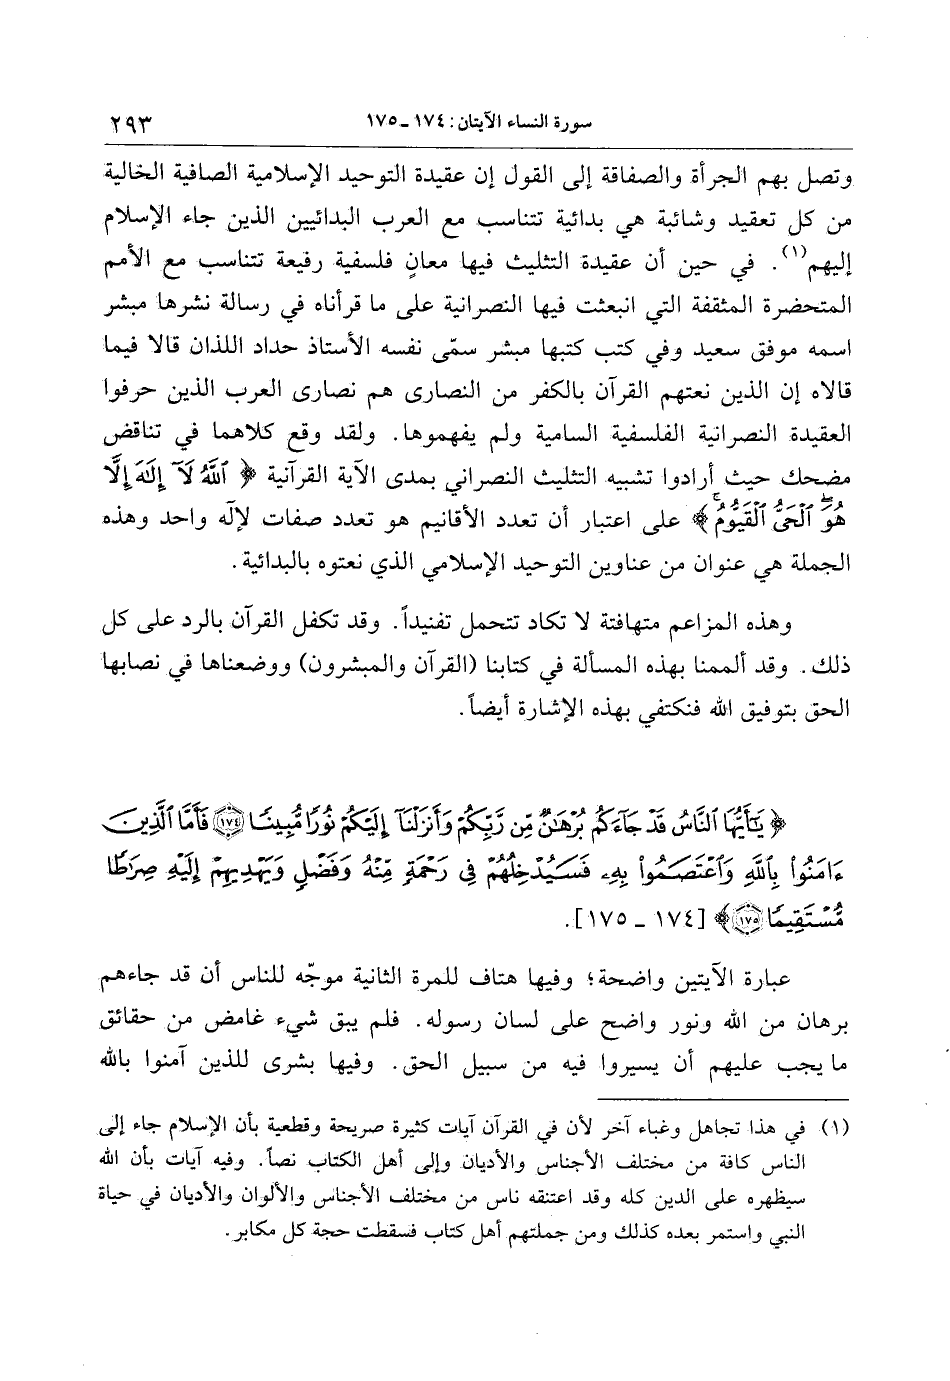 سورة النساء الآيتان: ١٧٤ ـ ١٧٥
٢٩٣
وتصل بهم الجرأة والصفاقة إلى القول إن عقيدة التوحيد الإسلامية الصافية الخالية
من كل تعقيد وشائبة هي بدائية تتناسب مع العرب البدائيين الذين جاء الإسلام
إليهم(١). في حين أن عقيدة التثليث فيها معانٍ فلسفية رفيعة تتناسب مع الأمم
المتحضرة المثقفة التي انبعثت فيها النصرانية على ما قرأناه في رسالة نشرها مبشر
اسمه موفق سعيد وفي كتب كتبها مبشر سمّى نفسه الأستاذ حداد اللذان قالا فيما
قالاه إن الذين نعتهم القرآن بالكفر من النصارى هم نصارى العرب الذين حرفوا
العقيدة النصرانية الفلسفية السامية ولم يفهموها. ولقد وقع كلاهما في تناقض
مضحك حيث أرادوا تشبيه التثليث النصراني بمدى الآية القرآنية ﴿ ٱللَّهُ لَآ إِلَٰهَ إِلَّا
هُوَ ٱلْحَىُّ ٱلْقَيُّومُ ۚ ﴾ على اعتبار أن تعدد الأقانيم هو تعدد صفات لإلٰه واحد وهذه
الجملة هي عنوان من عناوين التوحيد الإسلامي الذي نعتوه بالبدائية.
وهذه المزاعم متهافتة لا تكاد تتحمل تفنيداً. وقد تكفل القرآن بالرد على كل
ذلك. وقد ألممنا بهذه المسألة في كتابنا (القرآن والمبشرون) ووضعناها في نصابها
الحق بتوفيق الله فنكتفي بهذه الإشارة أيضاً.
﴿ يَٰٓأَيُّهَا ٱلنَّاسُ قَدْ جَآءَكُم بُرْهَٰنٌ مِّن رَّبِّكُمْ وَأَنزَلْنَآ إِلَيْكُمْ نُورًا مُّبِينًا ١٧٤ فَأَمَّا ٱلَّذِينَ
ءَامَنُوا۟ بِٱللَّهِ وَٱعْتَصَمُوا۟ بِهِۦ فَسَيُدْخِلُهُمْ فِى رَحْمَةٍ مِّنْهُ وَفَضْلٍ وَيَهْدِيهِمْ إِلَيْهِ صِرَٰطًا
مُّسْتَقِيمًا ١٧٥ ﴾ [١٧٤ ـ ١٧٥].
عبارة الآيتين واضحة؛ وفيها هتاف للمرة الثانية موجّه للناس أن قد جاءهم
برهان من الله ونور واضح على لسان رسوله. فلم يبق شيء غامض من حقائق
ما يجب عليهم أن يسيروا فيه من سبيل الحق. وفيها بشرى للذين آمنوا بالله
(١) في هذا تجاهل وغباء آخر لأن في القرآن آيات كثيرة صريحة وقطعية بأن الإسلام جاء إلى
الناس كافة من مختلف الأجناس والأديان وإلى أهل الكتاب نصاً. وفيه آيات بأن الله
سيظهره على الدين كله وقد اعتنقه ناس من مختلف الأجناس والألوان والأديان في حياة
النبي واستمر بعده كذلك ومن جملتهم أهل كتاب فسقطت حجة كل مكابر.